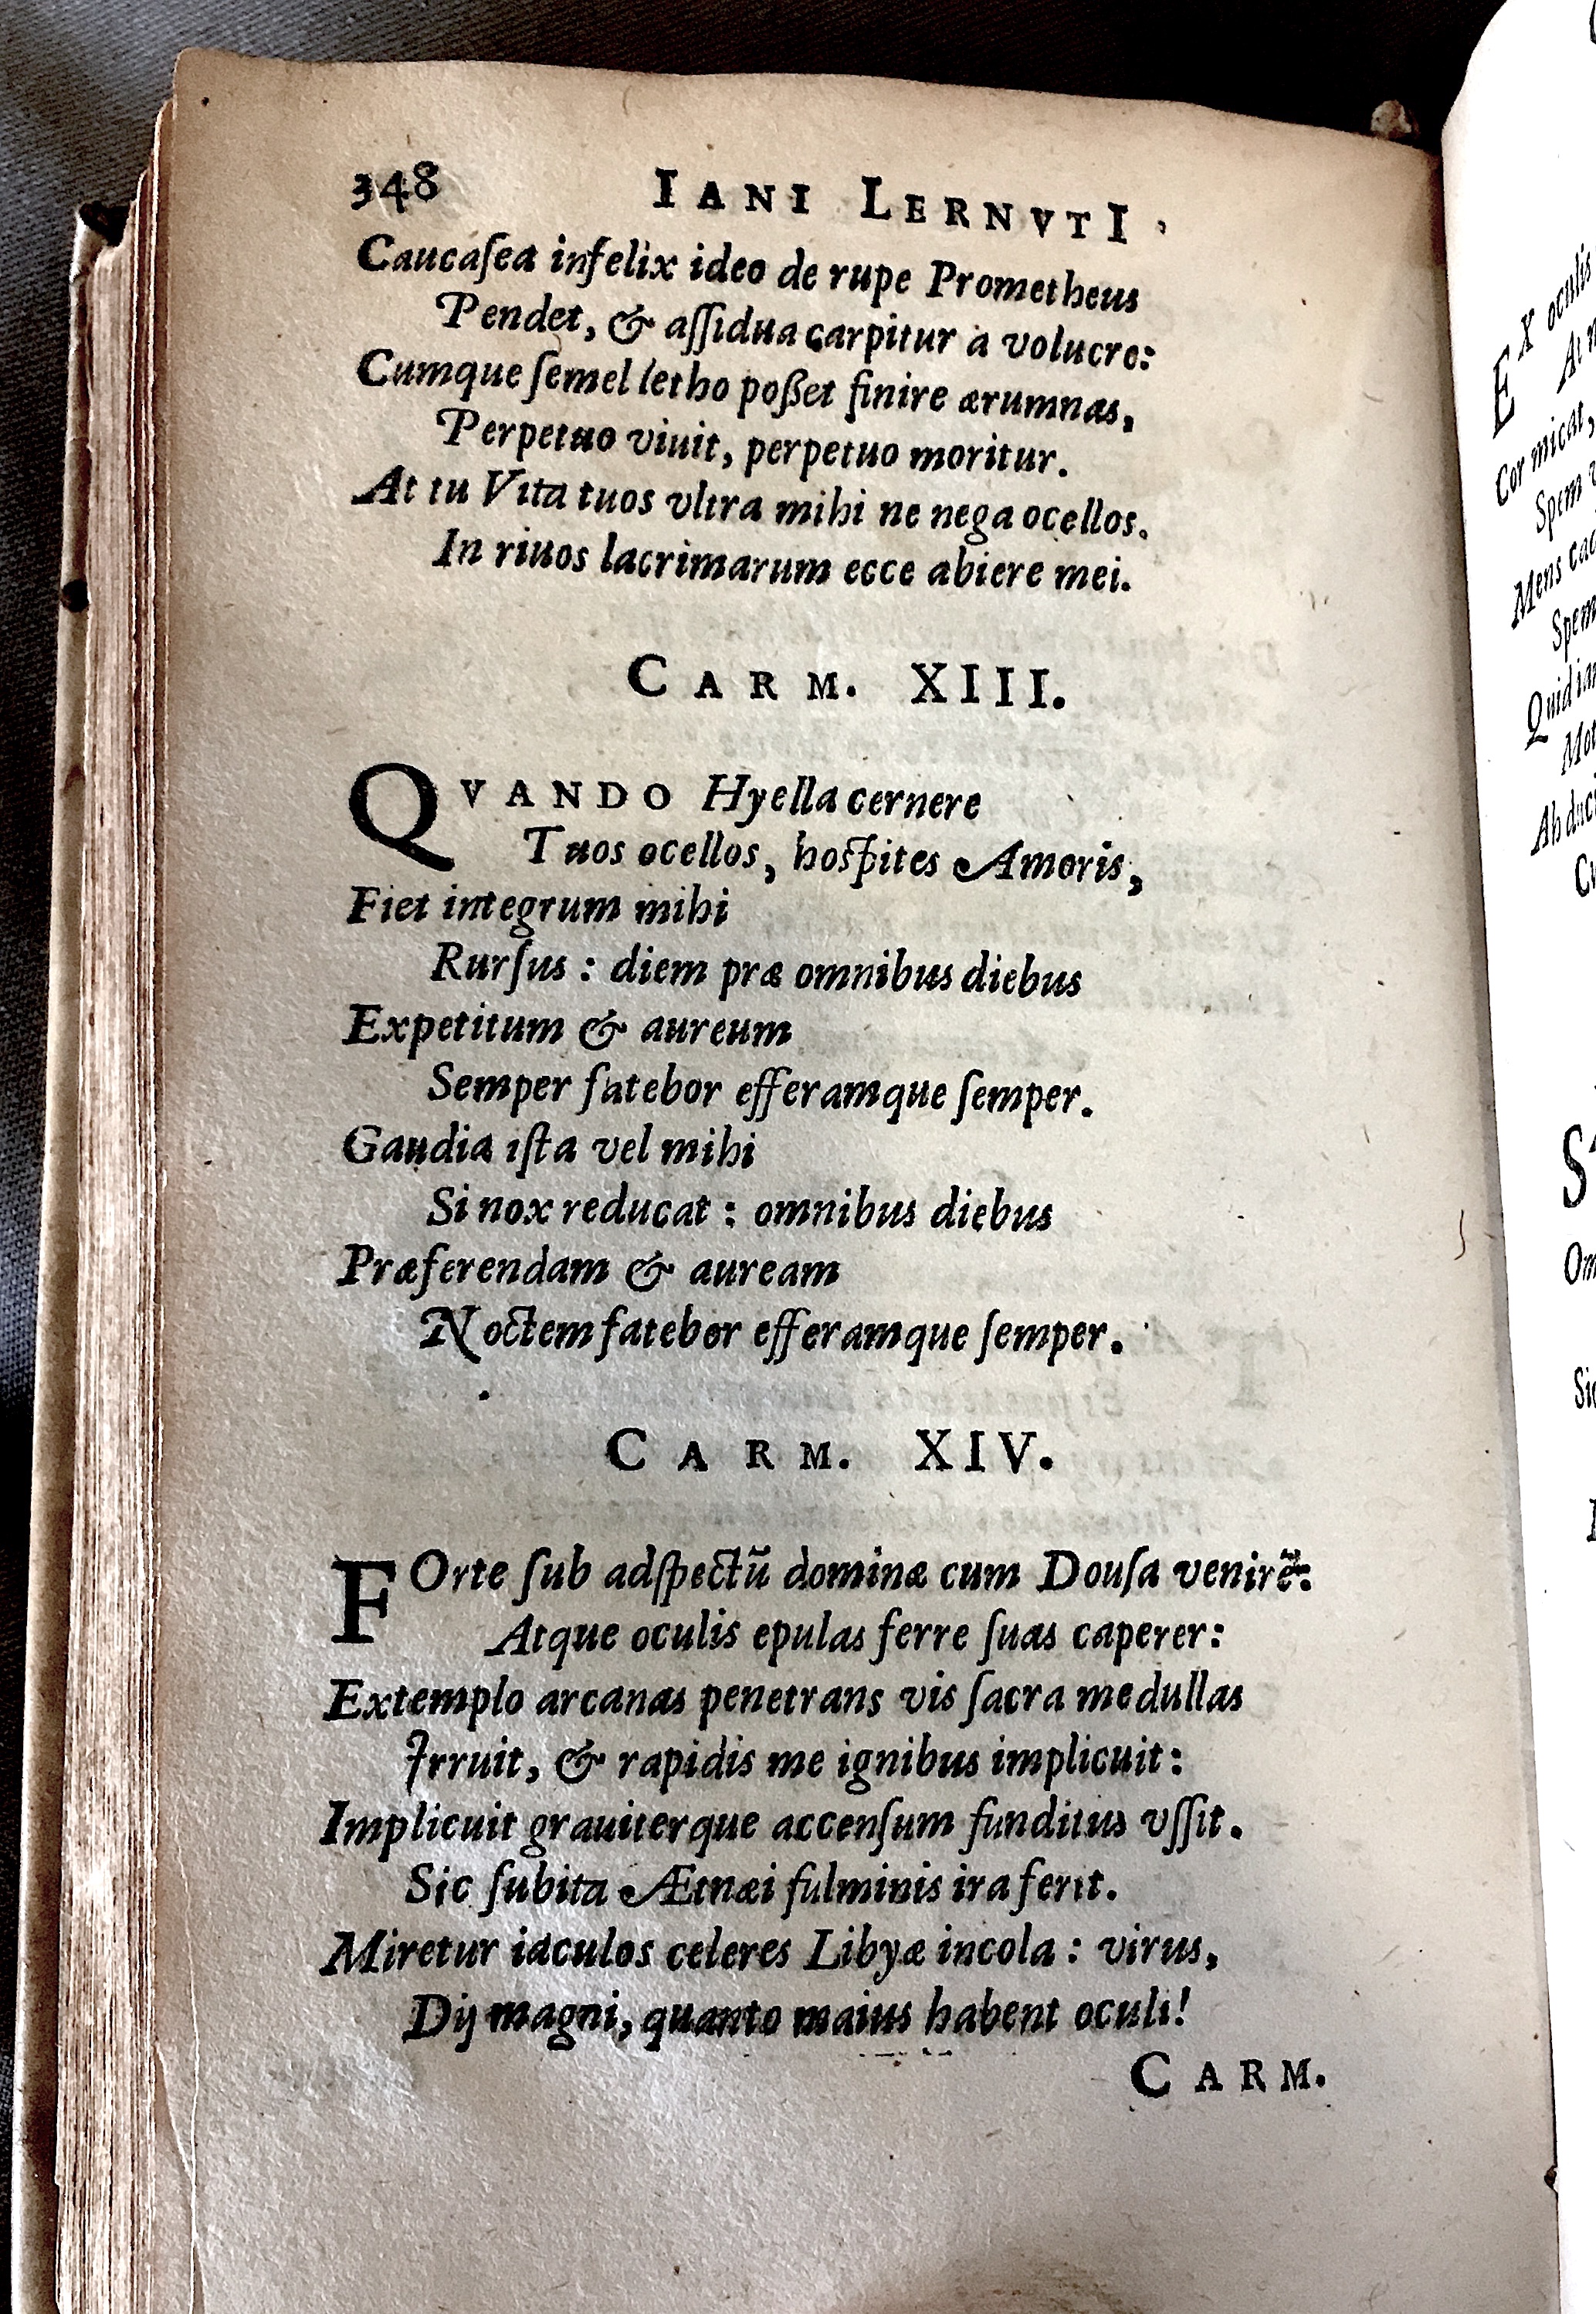 348 IANI LERNVTI
Caucaſea infelix ideo de rupe Prometheus
Pendet, & aſſidua carpitur à volucre:
Cumque ſemel letho poßet finire ærumnas,
Perpetuo viuit, perpetuo moritur.
At tu Vita tuos vltra mihi ne nega ocellos.
In riuos lacrimarum ecce abiere mei.
CARM. XIII.
QVANDO Hyella cernere
Tuos ocellos, hoſpites Amoris,
Fiet integrum mihi
Rurſus : diem præ omnibus diebus
Expetitum & aureum
Semper fatebor efferamque ſemper.
Gaudia iſta vel mihi
Si nox reducat : omnibus diebus
Præferendam & auream
Noctem fatebor efferamque ſemper.
CARM. XIV.
FOrte ſub adſpectū dominæ cum Douſa venirē:
Atque oculis epulas ferre ſuas caperer:
Extemplo arcanas penetrans vis ſacra medullas
Irruit, & rapidis me ignibus implicuit:
Implicuit grauiterque accenſum funditus vſſit.
Sic ſubita Ætnæi fulminis ira ferit.
Miretur iaculos celeres Libyæ incola : virus,
Dij magni, quanto maius habent oculi!
CARM.
EX oculis
Cor micat,
Spem
Mens
Quid